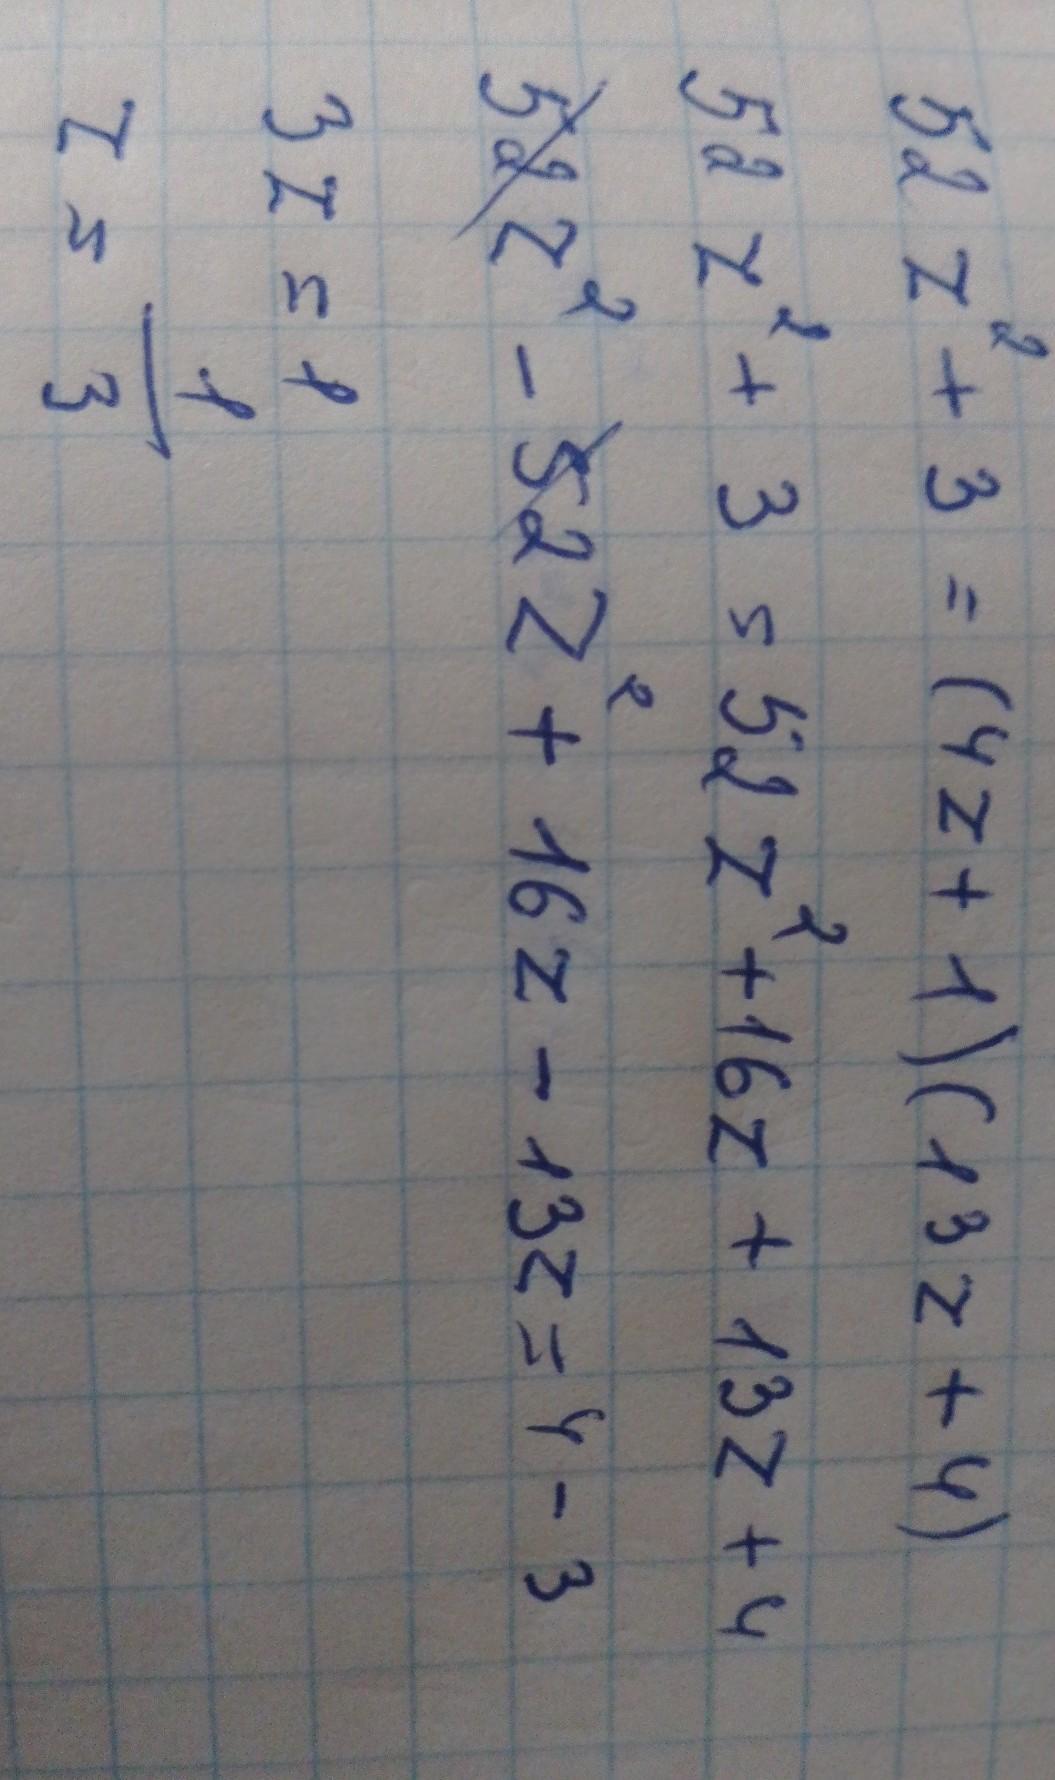 52 z² + 3 = (4z + 1)(13z + 4)
52 z² + 3 = 52 z² + 16z + 13z + 4
52 z² - 52z² + 16z - 13z = 4 - 3
3z = 1
z = 1/3